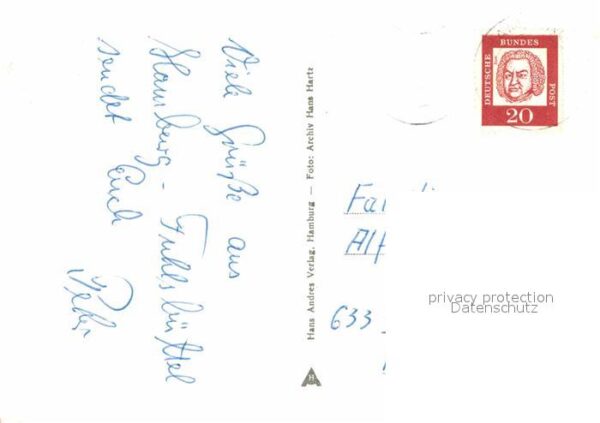 Viele Grüße aus
Hamburg - Fuhlsbüttel
sendet Euch
Peter
Hans Andres Verlag, Hamburg — Foto: Archiv Hans Hartz
H
DEUTSCHE
BUNDES
POST
20
Fa
Alf
633
privacy protection
Datenschutz